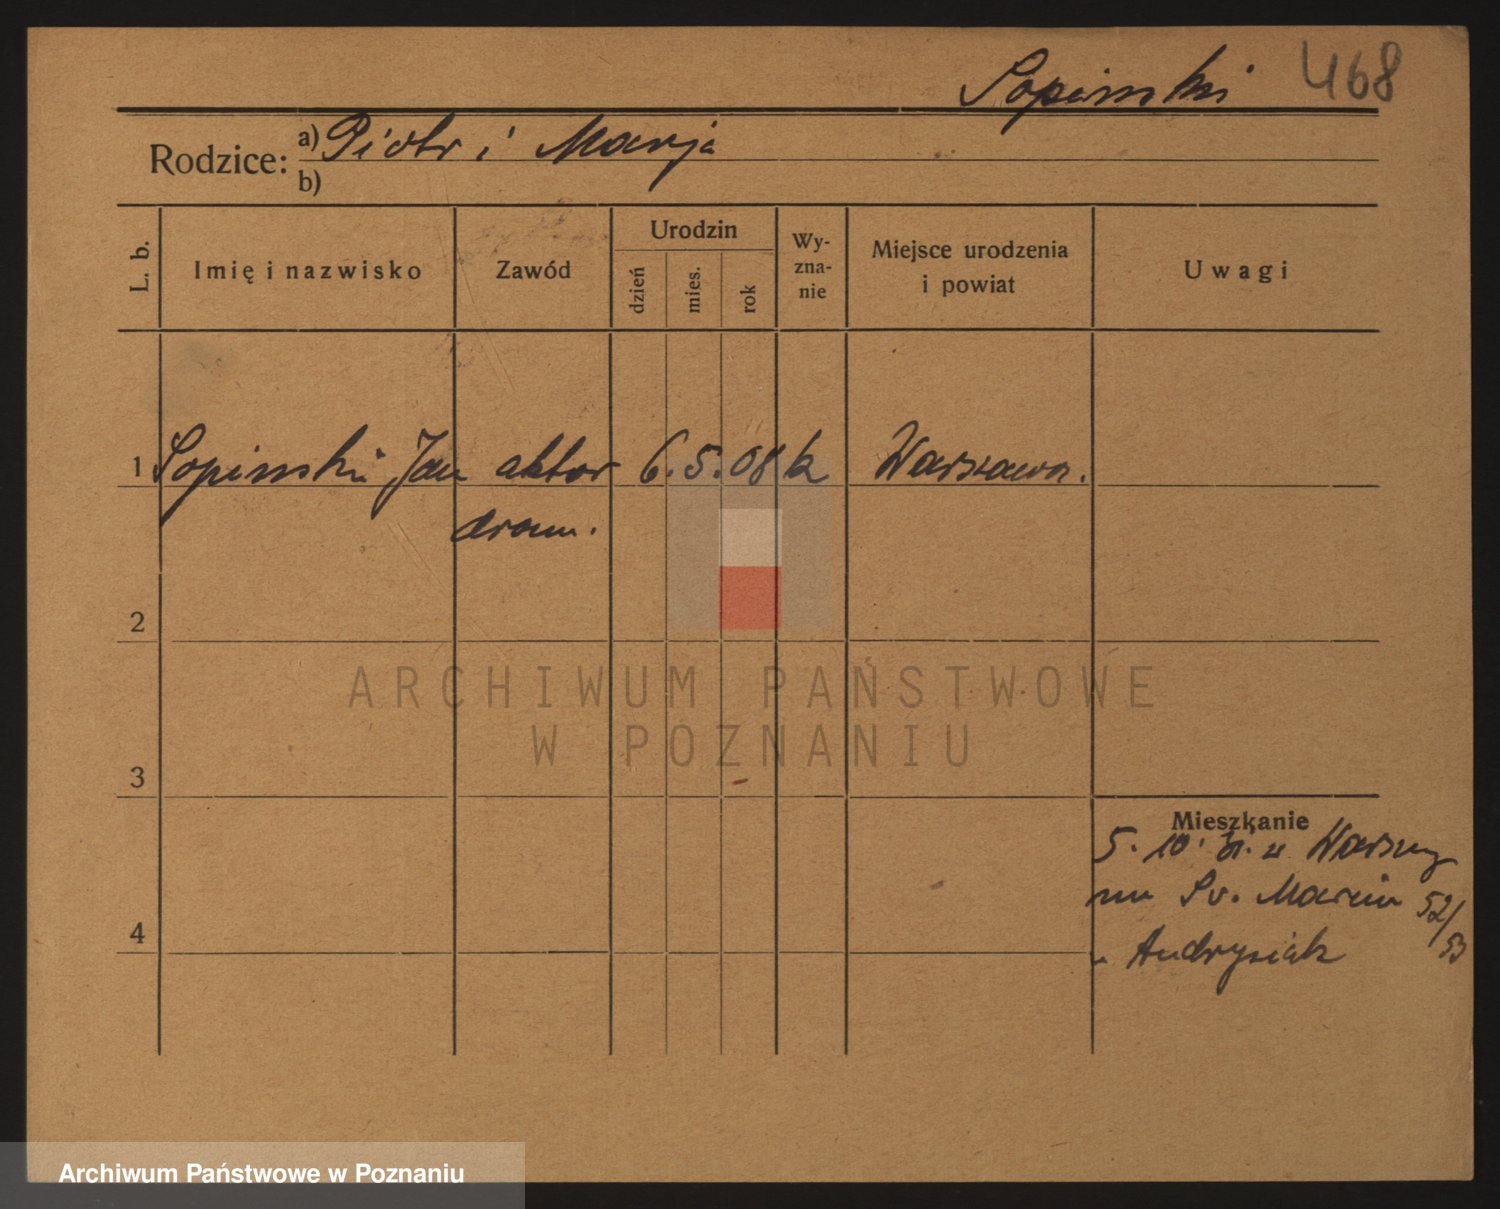 Sopiński 468
Rodzice: a) Piotr i Marja
b)
L. b. Imię i nazwisko Zawód Urodzin dzień mies. rok Wy-zna-nie Miejsce urodzenia i powiat Uwagi
1 Sopiński Jan aktor 6. 5. 08 k Warszawa.
dram.
2
ARCHIWUM PAŃSTWOWE
W POZNANIU
3
Mieszkanie
5. 10. 31. z Warszawy
na Św. Marcin 52/53
4
u Andrysiak
Archiwum Państwowe w Poznaniu